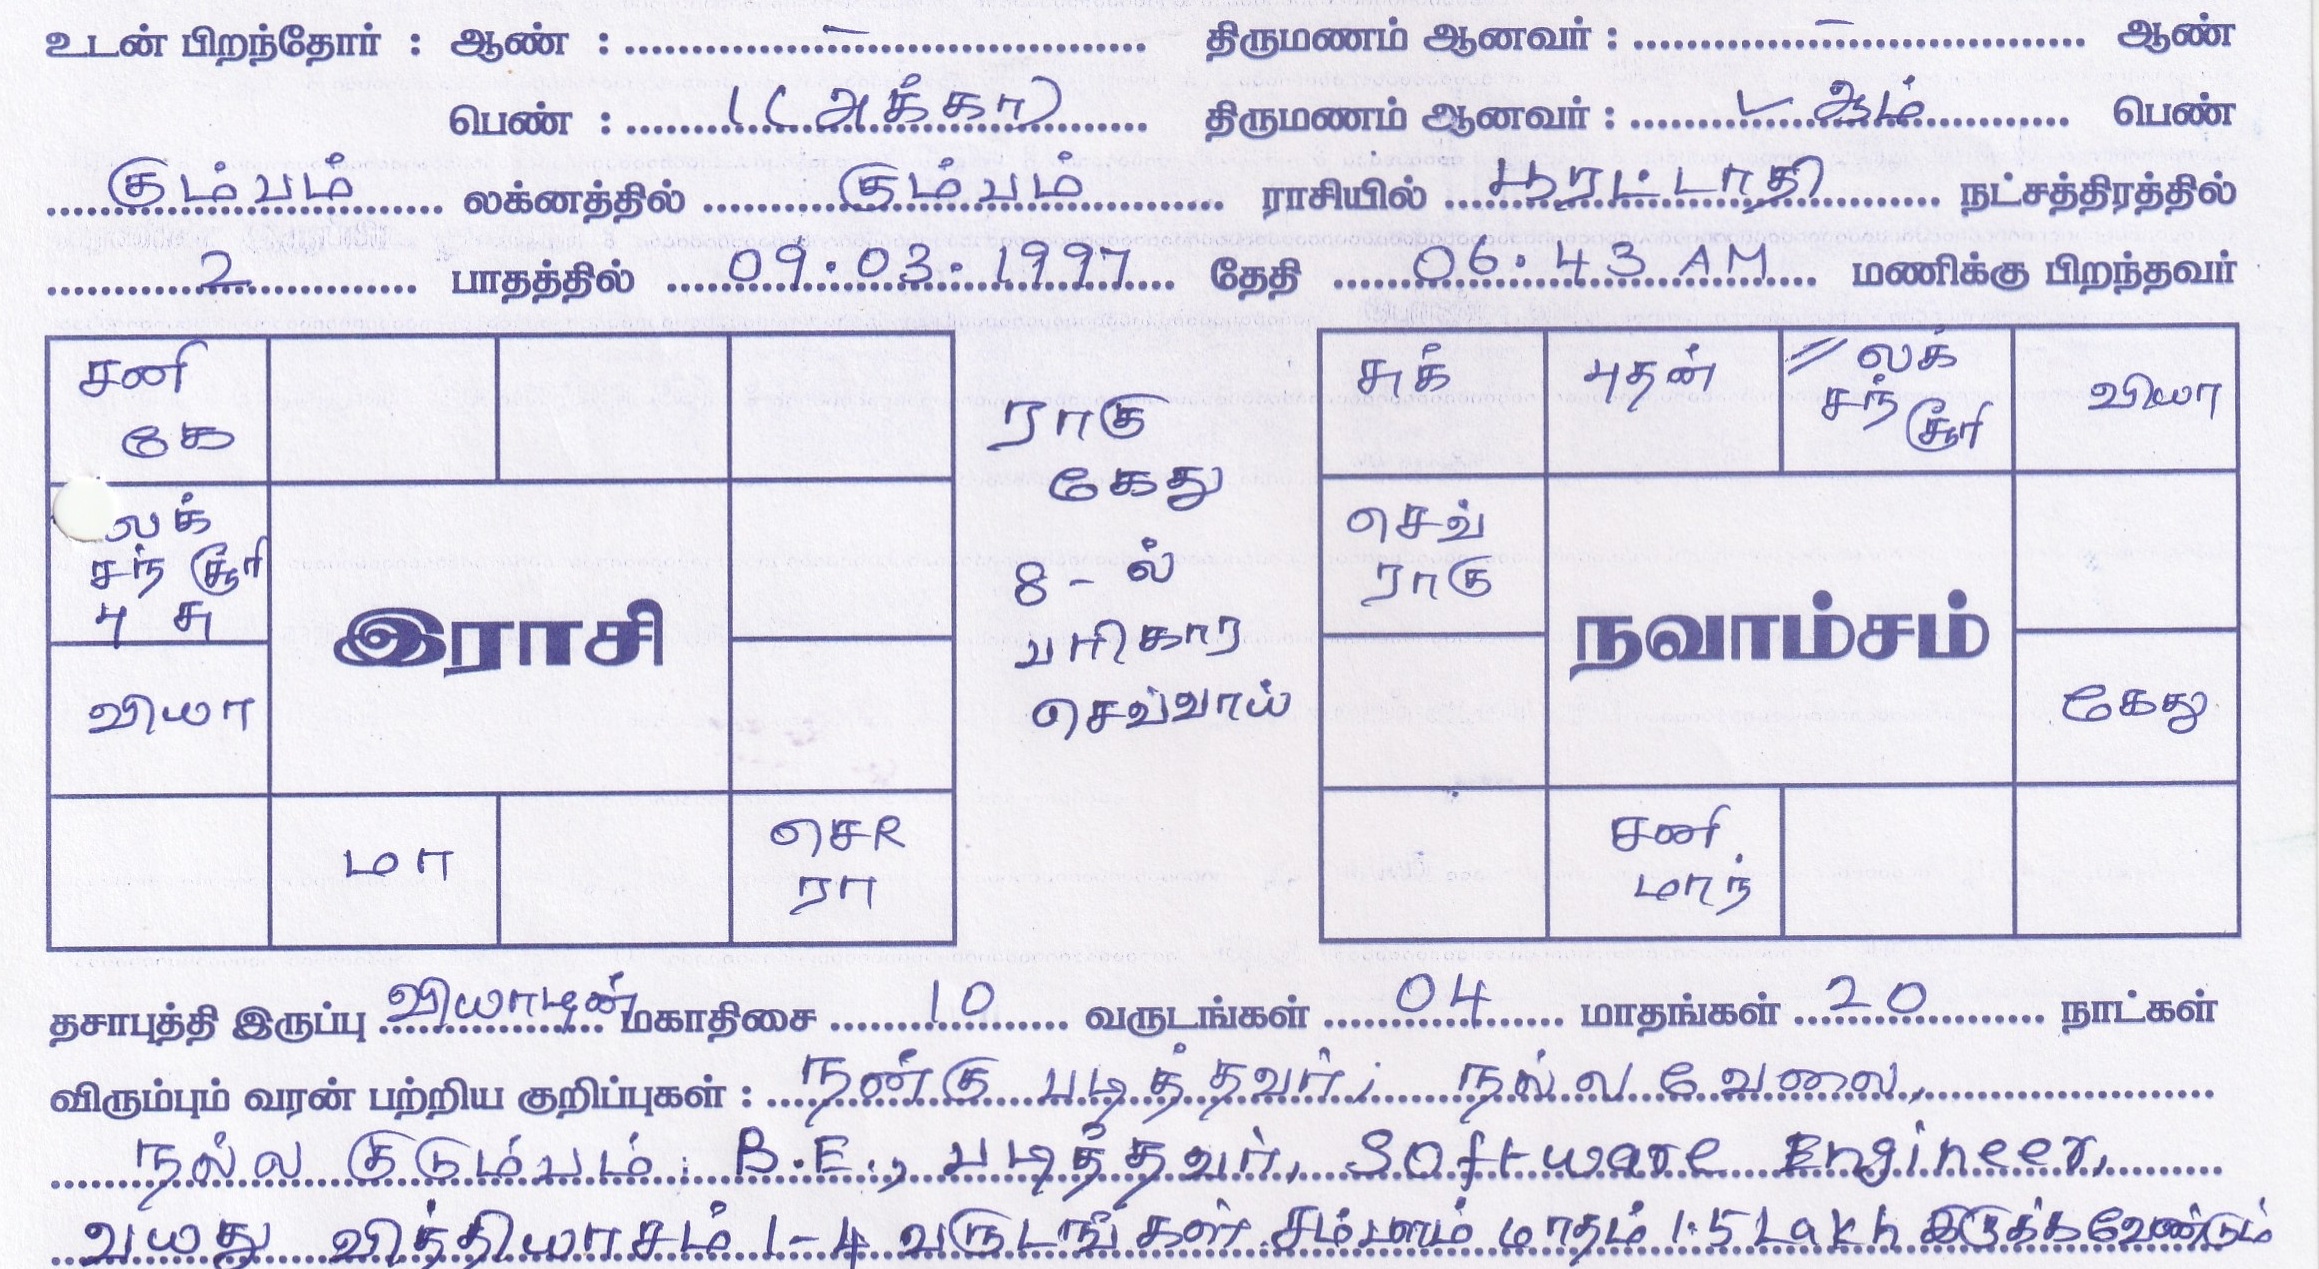 உடன் பிறந்தோர் : ஆண் : – திருமணம் ஆனவர் : – ஆண்
பெண் : 1 ( அக்கா ) திருமணம் ஆனவர் : ஆம் பெண்
கும்பம் லக்னத்தில் கும்பம் ராசியில் பூரட்டாதி நட்சத்திரத்தில்
2 பாதத்தில் 09.03.1997 தேதி 06.43 AM மணிக்கு பிறந்தவர்
சனி
கே
லக்
சந் சூரி
பு சு
வியா
இராசி
மா
செ R
ரா
ராகு
கேது
8 - ல்
பரிகார
செவ்வாய்
சுக் புதன் லக்
சந் சூரி
வியா
செவ்
ராகு
நவாம்சம்
கேது
சனி
மாந்
தசாபுத்தி இருப்பு வியாழன் மகாதிசை 10 வருடங்கள் 04 மாதங்கள் 20 நாட்கள்
விரும்பும் வரன் பற்றிய குறிப்புகள் : நன்கு படித்தவர், நல்ல வேலை,
நல்ல குடும்பம், B.E., படித்தவர், Software Engineer,
வயது வித்தியாசம் 1-4 வருடங்கள். சம்பளம் மாதம் 1.5 Lakh இருக்கவேண்டும்